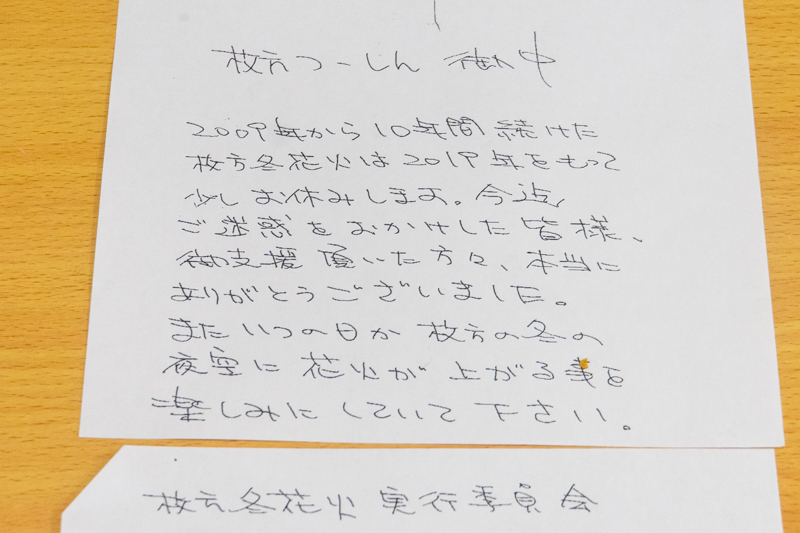 枚方つーしん 御中
2009年から10年間続けた
枚方冬花火は2019年をもって
少しお休みします。今迄
ご迷惑をおかけした皆様、
御支援頂いた方々、本当に
ありがとうございました。
またいつの日か枚方の冬の
夜空に花火が上がる事を
楽しみにしていて下さい。
枚方冬花火 実行委員会